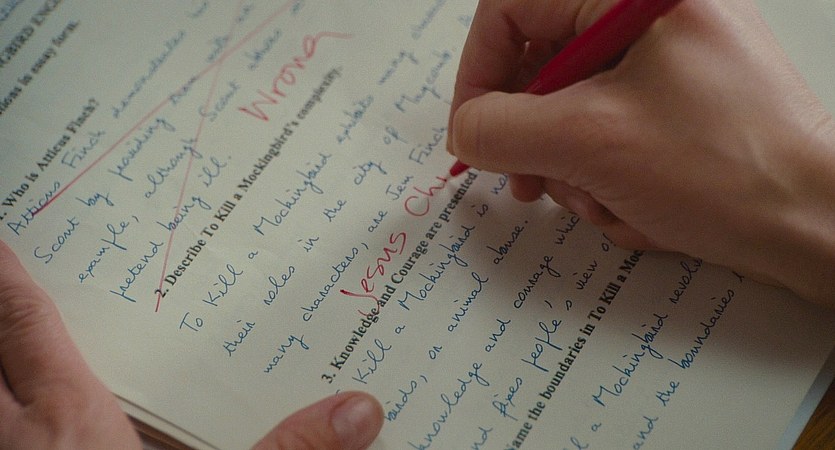 GBIRD ENG
tions in essay form.
1. Who is Atticus Finch?
Atticus Finch demonstrates
Scout by providing
example, although Scout
pretend being ill.
Wrong
2. Describe To Kill a Mockingbird's complexity.
To Kill a Mockingbird exhibits many
their roles in the city of Maycomb,
many characters, are Jem Finch
Jesus Ch
3. Knowledge and Courage are presented
Kill a Mockingbird is
birds, or animal abuse.
knowledge and courage
and fixes people's view
Name the boundaries in To Kill a Moc
a Mockingbird
and the boundaries